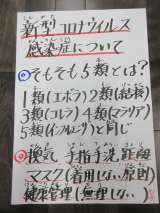 新型コロナウイルス
感染症について
◎そもそも5類とは？
1類(エボラ)2類(結核)
3類(コレラ)4類(マラリア)
5類(インフルエンザ)と同じ
◎換気 手指手洗 距離
マスク(着用しない原則)
健康管理(無理しない)